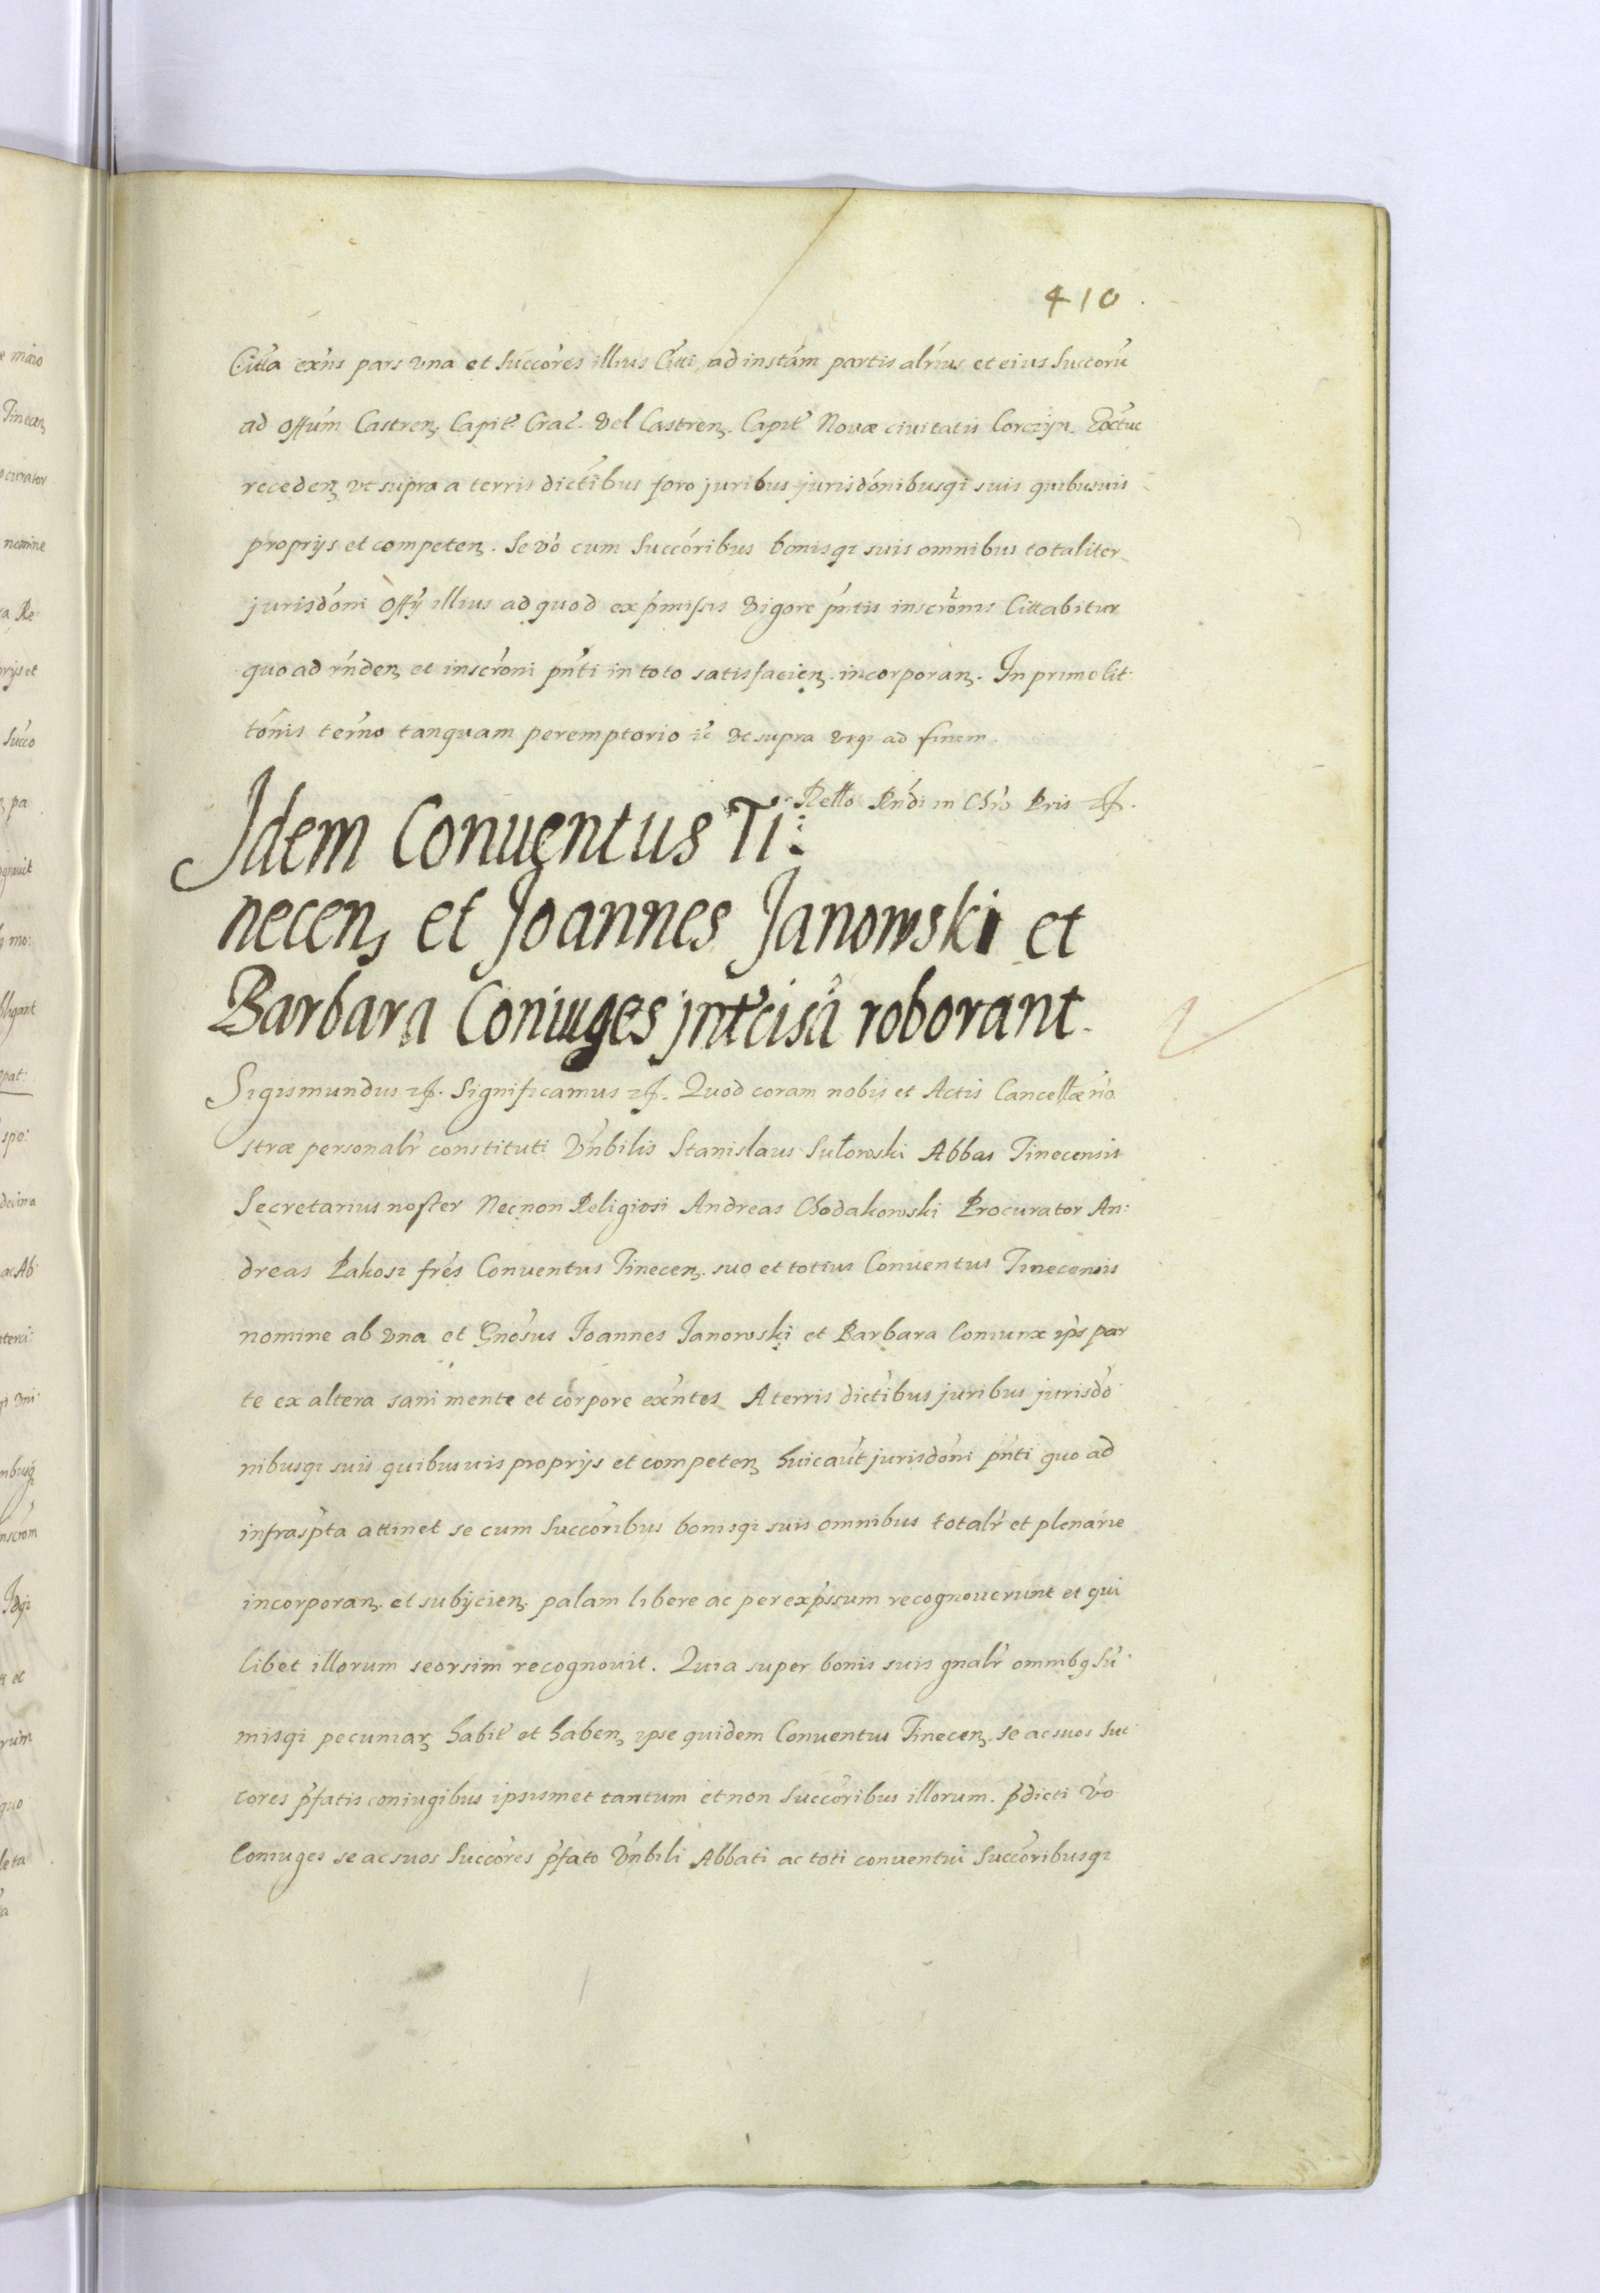 410
Citta exñs pars vna et Succo͂res illius Citti, ad instãm partis alrĩus et eius Succorũ
ad Offũm Castren. Capit͂ Crac͂. Vel Castren. Capit͂ Nouæ ciuitatis Corczÿn.
receden vt supra a terris dict͂ibus foro juribus jurisdo͂nibusq; suis quibusuis
proprijs et competen. Se vo͂ cum Succo͂ribus bonisq; suis omnibus totaliter
jurisdo͂ni Offÿ illius ad quod ex pr͂missis vigore pñtis inscro͂nis Cittabitur
quo ad rñden et inscro͂ni pñti in toto satisfacien. incorporan. In primo Cit
to͂nis ter͂no tanquam peremptorio &c vt supra vsq; ad finem.
Rel͂lo Rñdi in Chr͂o Pris &c.
Idem Conuentus Ti:
necen, et Joannes Janowski et
Barbara Coniuges jnt͂cisã roborant.
Sigismundus &c. Significamus &c. Quod coram nobis et Actis Cancellæ no͂
stræ personalr͂ constituti Vñbilis Stanislaus Sułowski Abbas Tinecensis
Secretarius noster Necnon Religiosi Andreas Chodakowski Procurator An:
dreas Pakosz fr͂es Conuentus Tinecen. suo et totius Conuentus Tinecensis
nomine ab vna et Gnõsus Joannes Janowski et Barbara Coniunx ip͂s par
te ex altera sani mente et corpore exñtes A terris dict͂ibus juribus jurisdo͂
nibusq; suis quibusuis proprijs et competen huic aut͂ jurisdo͂ni pñti quo ad
infrasp͂ta attinet se cum Succo͂ribus bonisq; suis omnibus totalr͂ et plenarie
incorporan. et subÿcien. palam libere ac per exp͂ssum recognouerunt et qui
libet illorum seorsim recognouit. Quia super bonis suis gnalr͂ omnib9 Su͂
misq; pecuniar habit͂ et haben, ipse quidem Conuentus Tinecen. Se ac suos Suc
cores p͂fatis coniugibus ipsismet tantum et non Succo͂ribus illorum. p͂dicti vo͂
Coniuges se ac suos Succo͂res p͂fato Vñbili Abbati ac toti conuentui Succo͂ribusq;